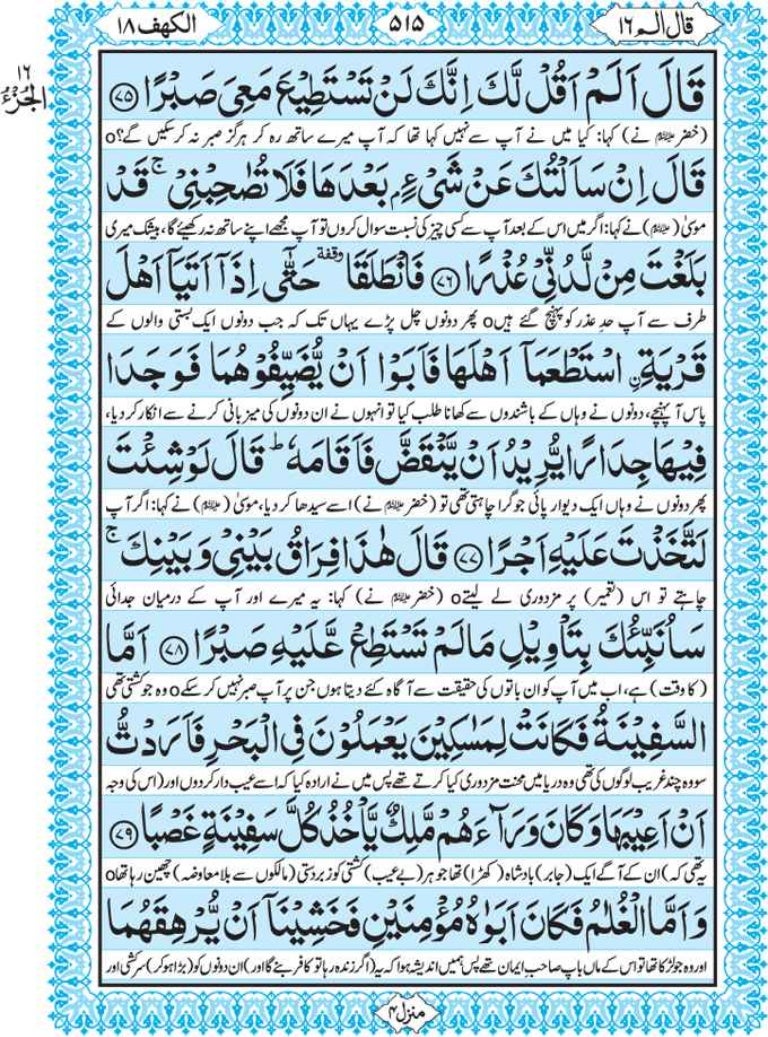 قال الم ١٦
٥١٥
الكهف ١٨
١٦
الجزء
قَالَ اَلَمْ اَقُلْ لَّكَ اِنَّكَ لَنْ تَسْتَطِيْعَ مَعِيَ صَبْرًا ﴿٧٥﴾
(خضر علیہ السلام نے) کہا: کیا میں نے آپ سے نہیں کہا تھا کہ آپ میرے ساتھ رہ کر ہرگز صبر نہ کر سکیں گے؟o
قَالَ اِنْ سَاَلْتُكَ عَنْ شَيْءٍۭ بَعْدَهَا فَلَا تُصٰحِبْنِيْ ۚ قَدْ
موسٰی (علیہ السلام) نے کہا: اگر میں اس کے بعد آپ سے کسی چیز کی نسبت سوال کروں تو آپ مجھے اپنے ساتھ نہ رکھیئے گا، بیشک میری
بَلَغْتَ مِنْ لَّدُنِّيْ عُذْرًا ﴿٧٦﴾ فَانْطَلَقَا وقفة حَتّٰۤى اِذَاۤ اَتَيَاۤ اَهْلَ
طرف سے آپ حدِ عذر کو پہنچ گئے ہیںo پھر دونوں چل پڑے یہاں تک کہ جب دونوں ایک بستی والوں کے
قَرْيَةِ ِۨاسْتَطْعَمَاۤ اَهْلَهَا فَاَبَوْا اَنْ يُّضَيِّفُوْهُمَا فَوَجَدَا
پاس آ پہنچے، دونوں نے وہاں کے باشندوں سے کھانا طلب کیا تو انہوں نے ان دونوں کی میزبانی کرنے سے انکار کر دیا،
فِيْهَا جِدَارًا يُّرِيْدُ اَنْ يَّنْقَضَّ فَاَقَامَهٗ ؕ قَالَ لَوْ شِئْتَ
پھر دونوں نے وہاں ایک دیوار پائی جو گرا چاہتی تھی تو (خضر علیہ السلام نے) اسے سیدھا کر دیا، موسٰی (علیہ السلام) نے کہا: اگر آپ
لَتَّخَذْتَ عَلَيْهِ اَجْرًا ﴿٧٧﴾ قَالَ هٰذَا فِرَاقُ بَيْنِيْ وَ بَيْنِكَ ۚ
چاہتے تو اس (تعمیر) پر مزدوری لے لیتےo (خضر علیہ السلام نے) کہا: یہ میرے اور آپ کے درمیان جدائی
سَاُنَبِّئُكَ بِتَاْوِيْلِ مَا لَمْ تَسْتَطِعْ عَّلَيْهِ صَبْرًا ﴿٧٨﴾ اَمَّا
(کا وقت) ہے، اب میں آپ کو ان باتوں کی حقیقت سے آگاہ کئے دیتا ہوں جن پر آپ صبر نہیں کر سکےo وہ جو کشتی تھی
السَّفِيْنَةُ فَكَانَتْ لِمَسٰكِيْنَ يَعْمَلُوْنَ فِي الْبَحْرِ فَاَرَدْتُّ
سو وہ چند غریب لوگوں کی تھی وہ دریا میں محنت مزدوری کیا کرتے تھے پس میں نے ارادہ کیا کہ اسے عیب دار کر دوں اور (اس کی وجہ
اَنْ اَعِيْبَهَا وَ كَانَ وَرَآءَهُمْ مَّلِكٌ يَّاْخُذُ كُلَّ سَفِيْنَةٍ غَصْبًا ﴿٧٩﴾
یہ تھی کہ) ان کے آگے ایک (جابر) بادشاہ (کھڑا) تھا جو ہر (بے عیب) کشتی کو زبردستی (مالکوں سے بلا معاوضہ) چھین رہا تھاo
وَ اَمَّا الْغُلٰمُ فَكَانَ اَبَوٰهُ مُؤْمِنَيْنِ فَخَشِيْنَاۤ اَنْ يُّرْهِقَهُمَا
اور وہ جو لڑکا تھا تو اس کے ماں باپ صاحبِ ایمان تھے پس ہمیں اندیشہ ہوا کہ یہ (اگر زندہ رہا تو کافر بنے گا اور) ان دونوں کو (بڑا ہو کر) سرکشی اور
منزل ۴